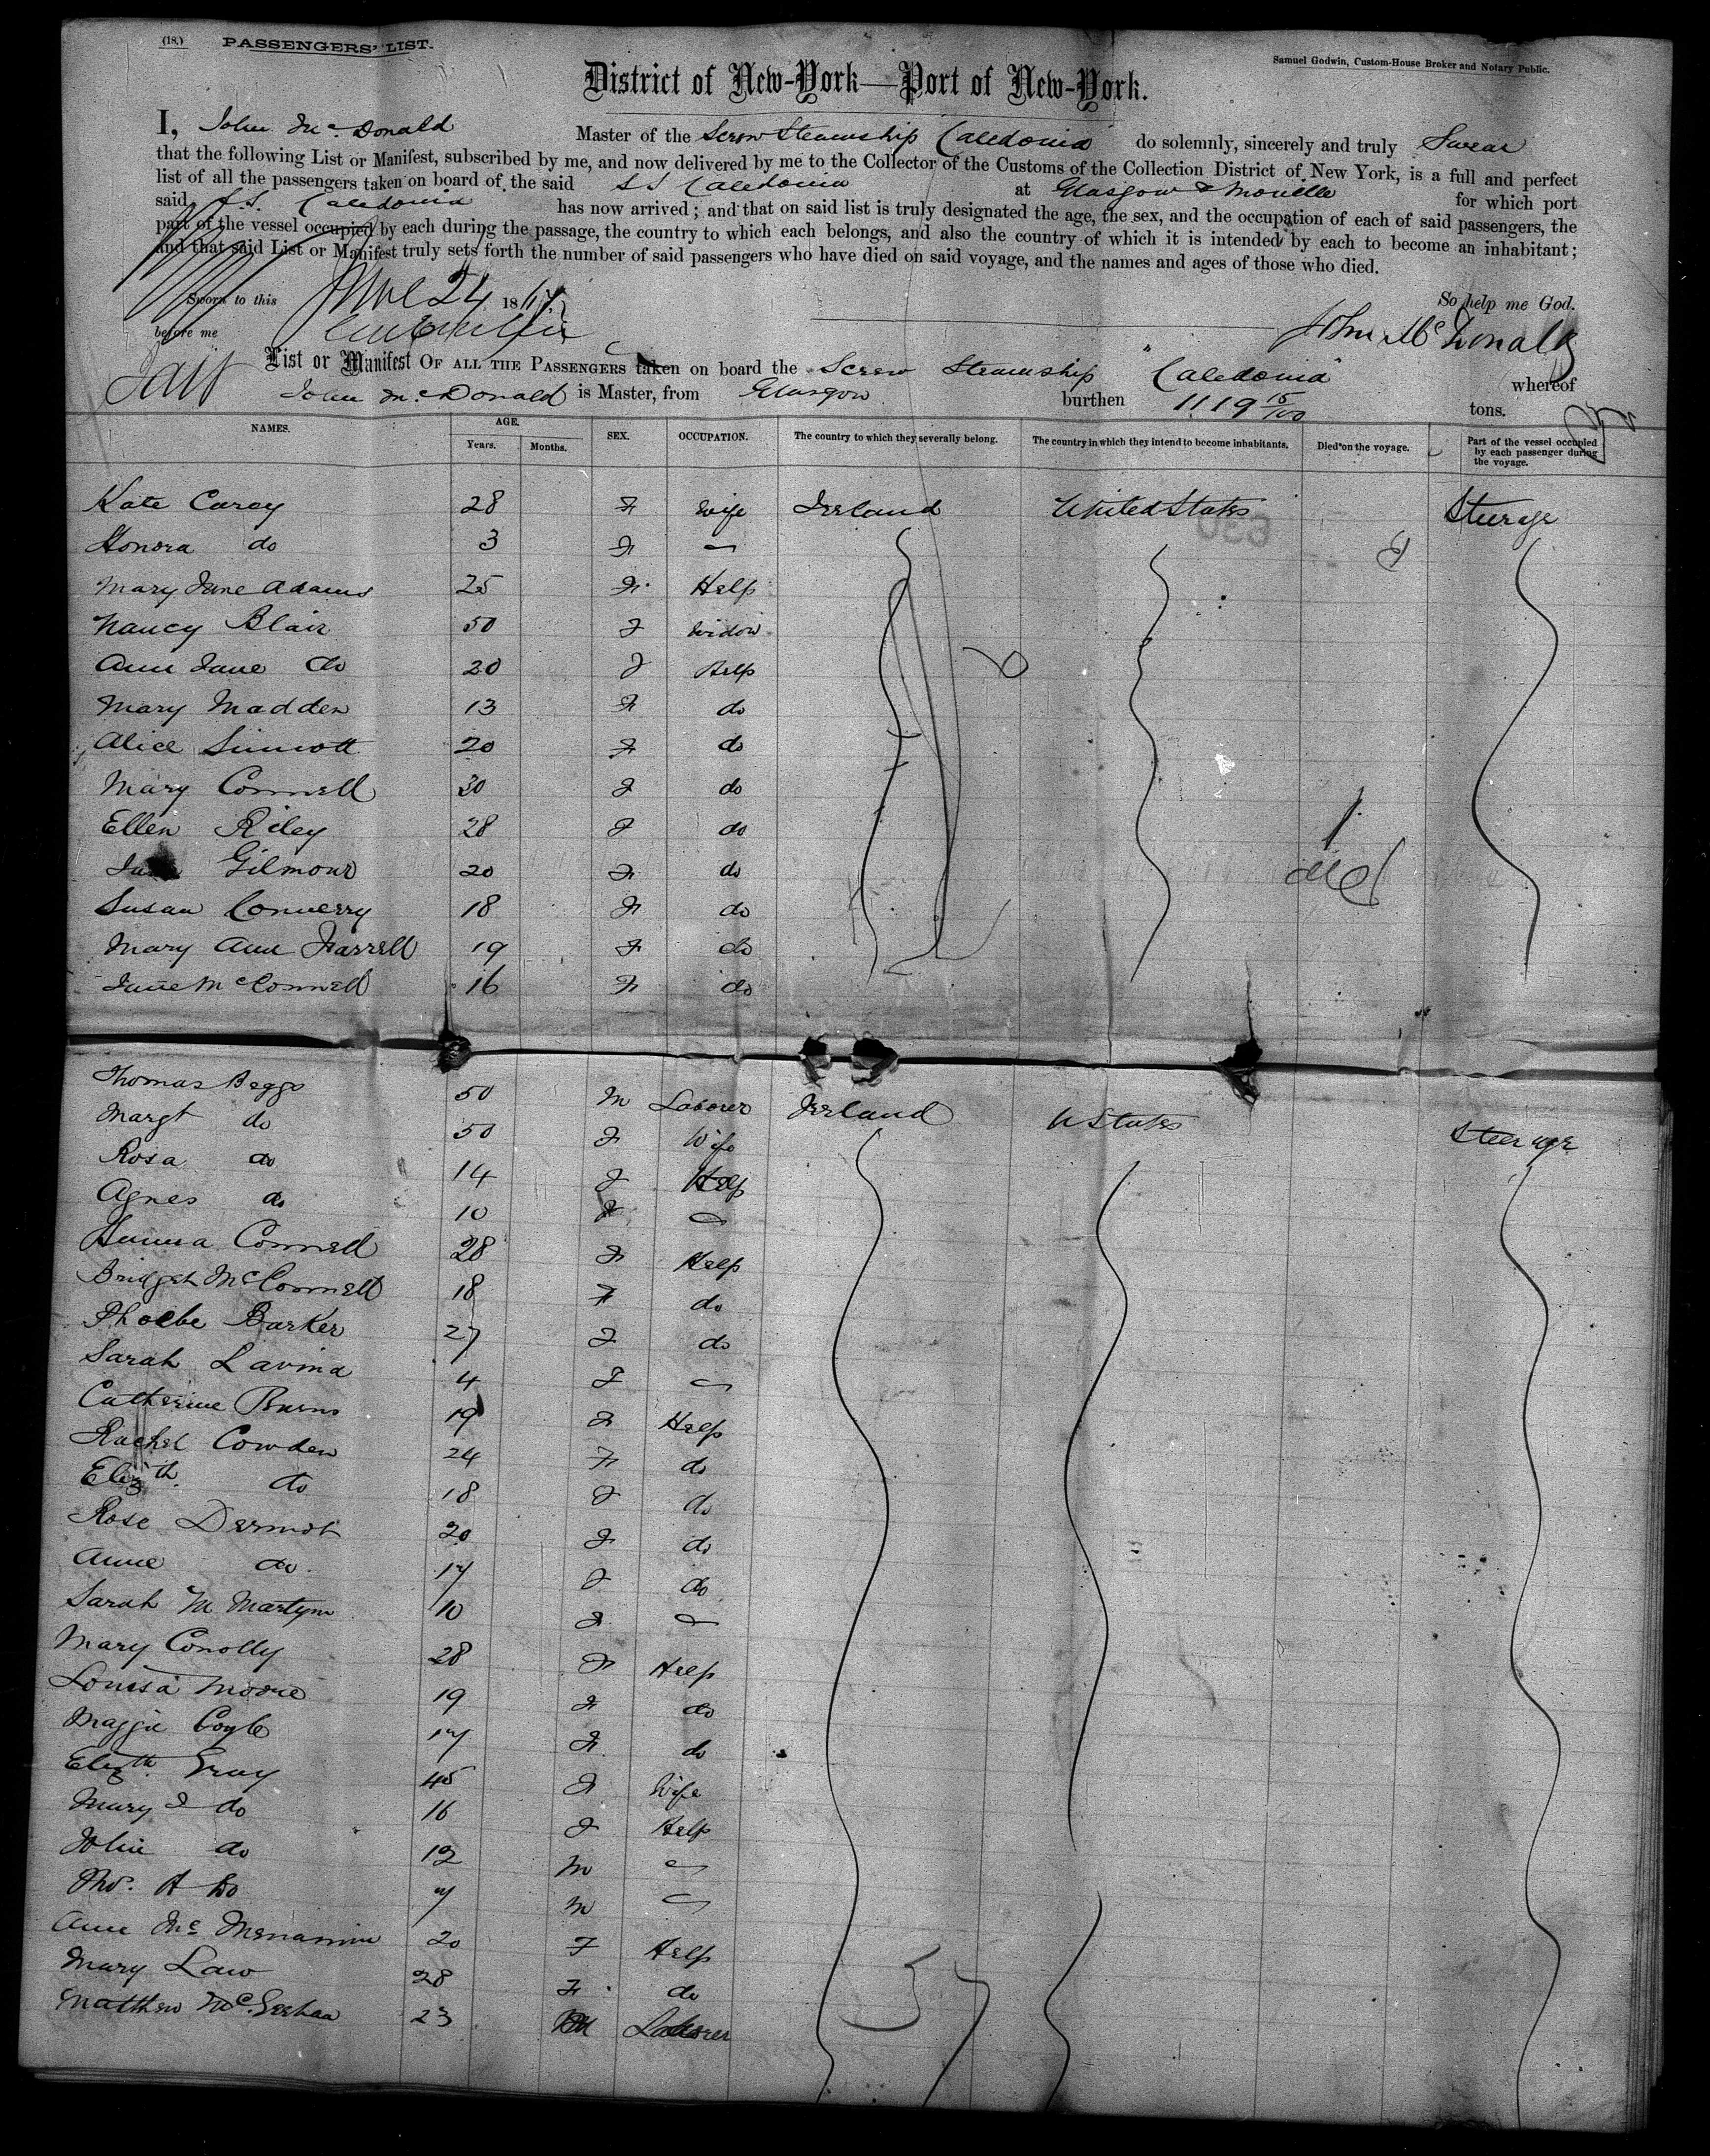 (18.) PASSENGERS' LIST.
Samuel Godwin, Custom-House Broker and Notary Public.
District of New-York—Port of New-York.
I, John McDonald Master of the Screw Steamship Caledonia do solemnly, sincerely and truly Swear
that the following List or Manifest, subscribed by me, and now delivered by me to the Collector of the Customs of the Collection District of New York, is a full and perfect
list of all the passengers taken on board of the said SS Caledonia at Glasgow & Moville for which port
said S.S. Caledonia has now arrived; and that on said list is truly designated the age, the sex, and the occupation of each of said passengers, the
part of the vessel occupied by each during the passage, the country to which each belongs, and also the country of which it is intended by each to become an inhabitant;
and that said List or Manifest truly sets forth the number of said passengers who have died on said voyage, and the names and ages of those who died.
Sworn to this 24 18 So help me God.
before me John McDonald
List or Manifest OF ALL THE PASSENGERS taken on board the Screw Steamship "Caledonia" whereof
John McDonald is Master, from Glasgow burthen 1119 15/100 tons.
NAMES. AGE. Years. Months. SEX. OCCUPATION. The country to which they severally belong. The country in which they intend to become inhabitants. Died on the voyage. Part of the vessel occupied by each passenger during the voyage.
Kate Carey 28 F Wife Ireland United States Steerage
Honora do 3 F —
Mary Jane Adams 25 F Help
Nancy Blair 50 F Widow
Ann Jane do 20 F Help
Mary Madden 13 F do
Alice Sinnott 20 F do
Mary Connell 30 F do
Ellen Riley 28 F do
Gilmour 20 F do
Susan Converry 18 F do
Mary Ann Farrell 19 F do
Jane McConnell 16 F do
Thomas Beggs 50 M Laborer Ireland U States Steerage
Margt do 50 F Wife
Rosa do 14 F Help
Agnes do 10 F —
Hanna Connell 28 F Help
Bridget McConnell 18 F do
Phoebe Barker 27 F do
Sarah Lavina 4 F —
Catherine Burns 19 F Help
Rachel Cowden 24 F do
Elizth. do 18 F do
Rose Dermot 20 F do
Anne do 17 F do
Sarah M Martyn 10 F —
Mary Conolly 28 F Help
Louisa Moore 19 F do
Maggie Coyle 17 F do
Elizth. Gray 45 F Wife
Mary J do 16 F Help
John do 12 M —
Tho. A Do 7 M —
Ann McMenamin 20 F Help
Mary Law 28 F do
Matthew McGeehan 23 M Laborer